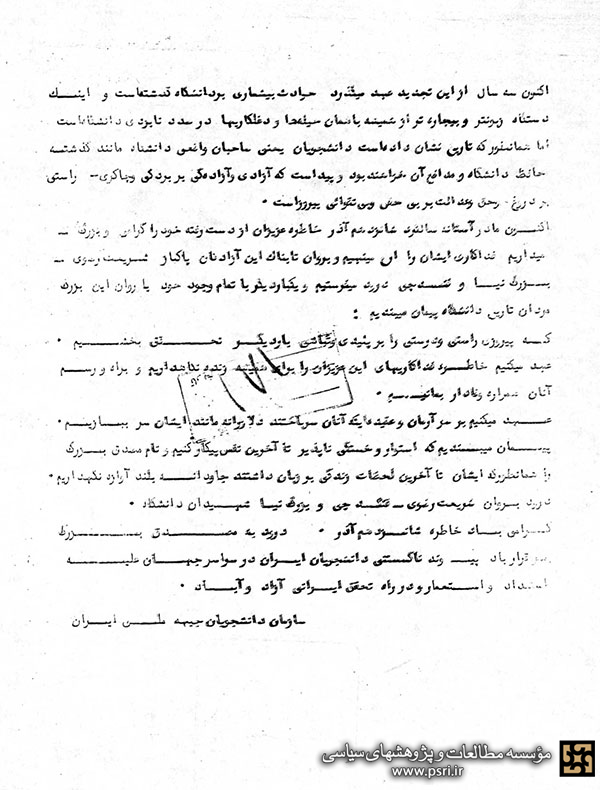 اکنون سه سال از این تجدید عهد میگذرد حوادث بیشماری بر دانشگاه گذشته‌است و اینک
دستگاه زبونتر و بیچاره تر از همیشه با همان حیله‌ها و دغلکاریها در صدد نابودی دانشگاه‌است
اما همانطور که تاریخ نشان داده‌است دانشجویان یعنی صاحبان واقعی دانشگاه مانند گذشته
حافظ دانشگاه و مدافع آن خواهند بود و پیداست که آزادی و آزادگی بر بردگی و راستی
بر دروغ و حق و عدالت بر بی حقی و بی تقوائی پیروز است •
اکنون ما در آستانه سالروز شانزدهم آذر خاطره عزیزان از دست رفته خود را گرامی و بزرگ
میداریم فداکاری ایشان را ارج مینهیم و بروان تابناک این آزادگان پاکباز شریعت رضوی –
بزرگ نیا و قندچی درود میفرستیم و یکبار دیگر با تمام وجود خود با روان این بزرگ
مردان تاریخ دانشگاه پیمان میبندیم :
که پیروزی راستی و درستی را بر پلیدی و تباهی بار دیگر تحقق بخشیم •
عهد میکنیم خاطره فداکاریهای این عزیزان را برای همیشه زنده نگاهداریم و براه و رسم
آنان همواره وفادار بمانیم •
عهد میکنیم بر سر آرمان و عقیده‌ایکه آنان سر باختند دلاورانه مانند ایشان سر ببازیم •
پیمان میبندیم که استوار و خستگی ناپذیر تا آخرین نفس پیکار کنیم و نام مصدق بزرگ
را همانطور که ایشان تا آخرین لحظات زندگی بر زبان داشتند جاودانه بلند آوازه نگهداریم •
درود بروان شریعت رضوی – قندچی و بزرگ نیا شهیدان دانشگاه •
گرامی باد خاطره شانزدهم آذر • درود به مصدق بزرگ
برقرار باد پیوند ناگسستنی دانشجویان ایران در سراسر جهان علیه
استبداد و استعمار و در راه تحقق ایرانی آزاد و آباد •
سازمان دانشجویان جبهه ملی ایران
مؤسسه مطالعات و پژوهشهای سیاسی
www.psri.ir